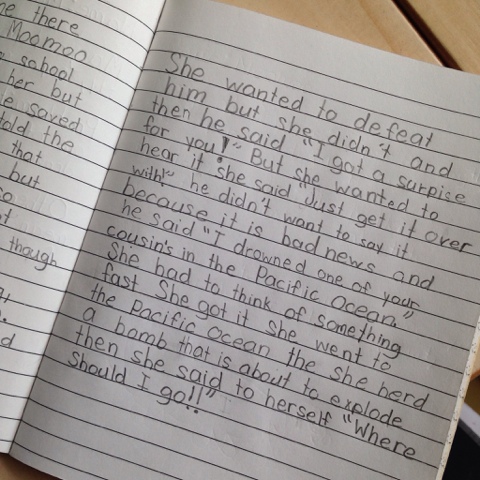 e there
Moomoo
school
her but
e saved
told the
that
but
so
though
She wanted to defeat
him but she didn't and
then he said "I got a surpise
for you!" But she wanted to
hear it she said "Just get it over
with!" he didn't want to say it
because it is bad news and
he said "I drowned one of your
cousin's in the Pacific Ocean."
She had to think of something
fast She got it She went to
the Pacific Ocean the she herd
a bomb that is about to explode
then she said to herself "Where
should I go!!"